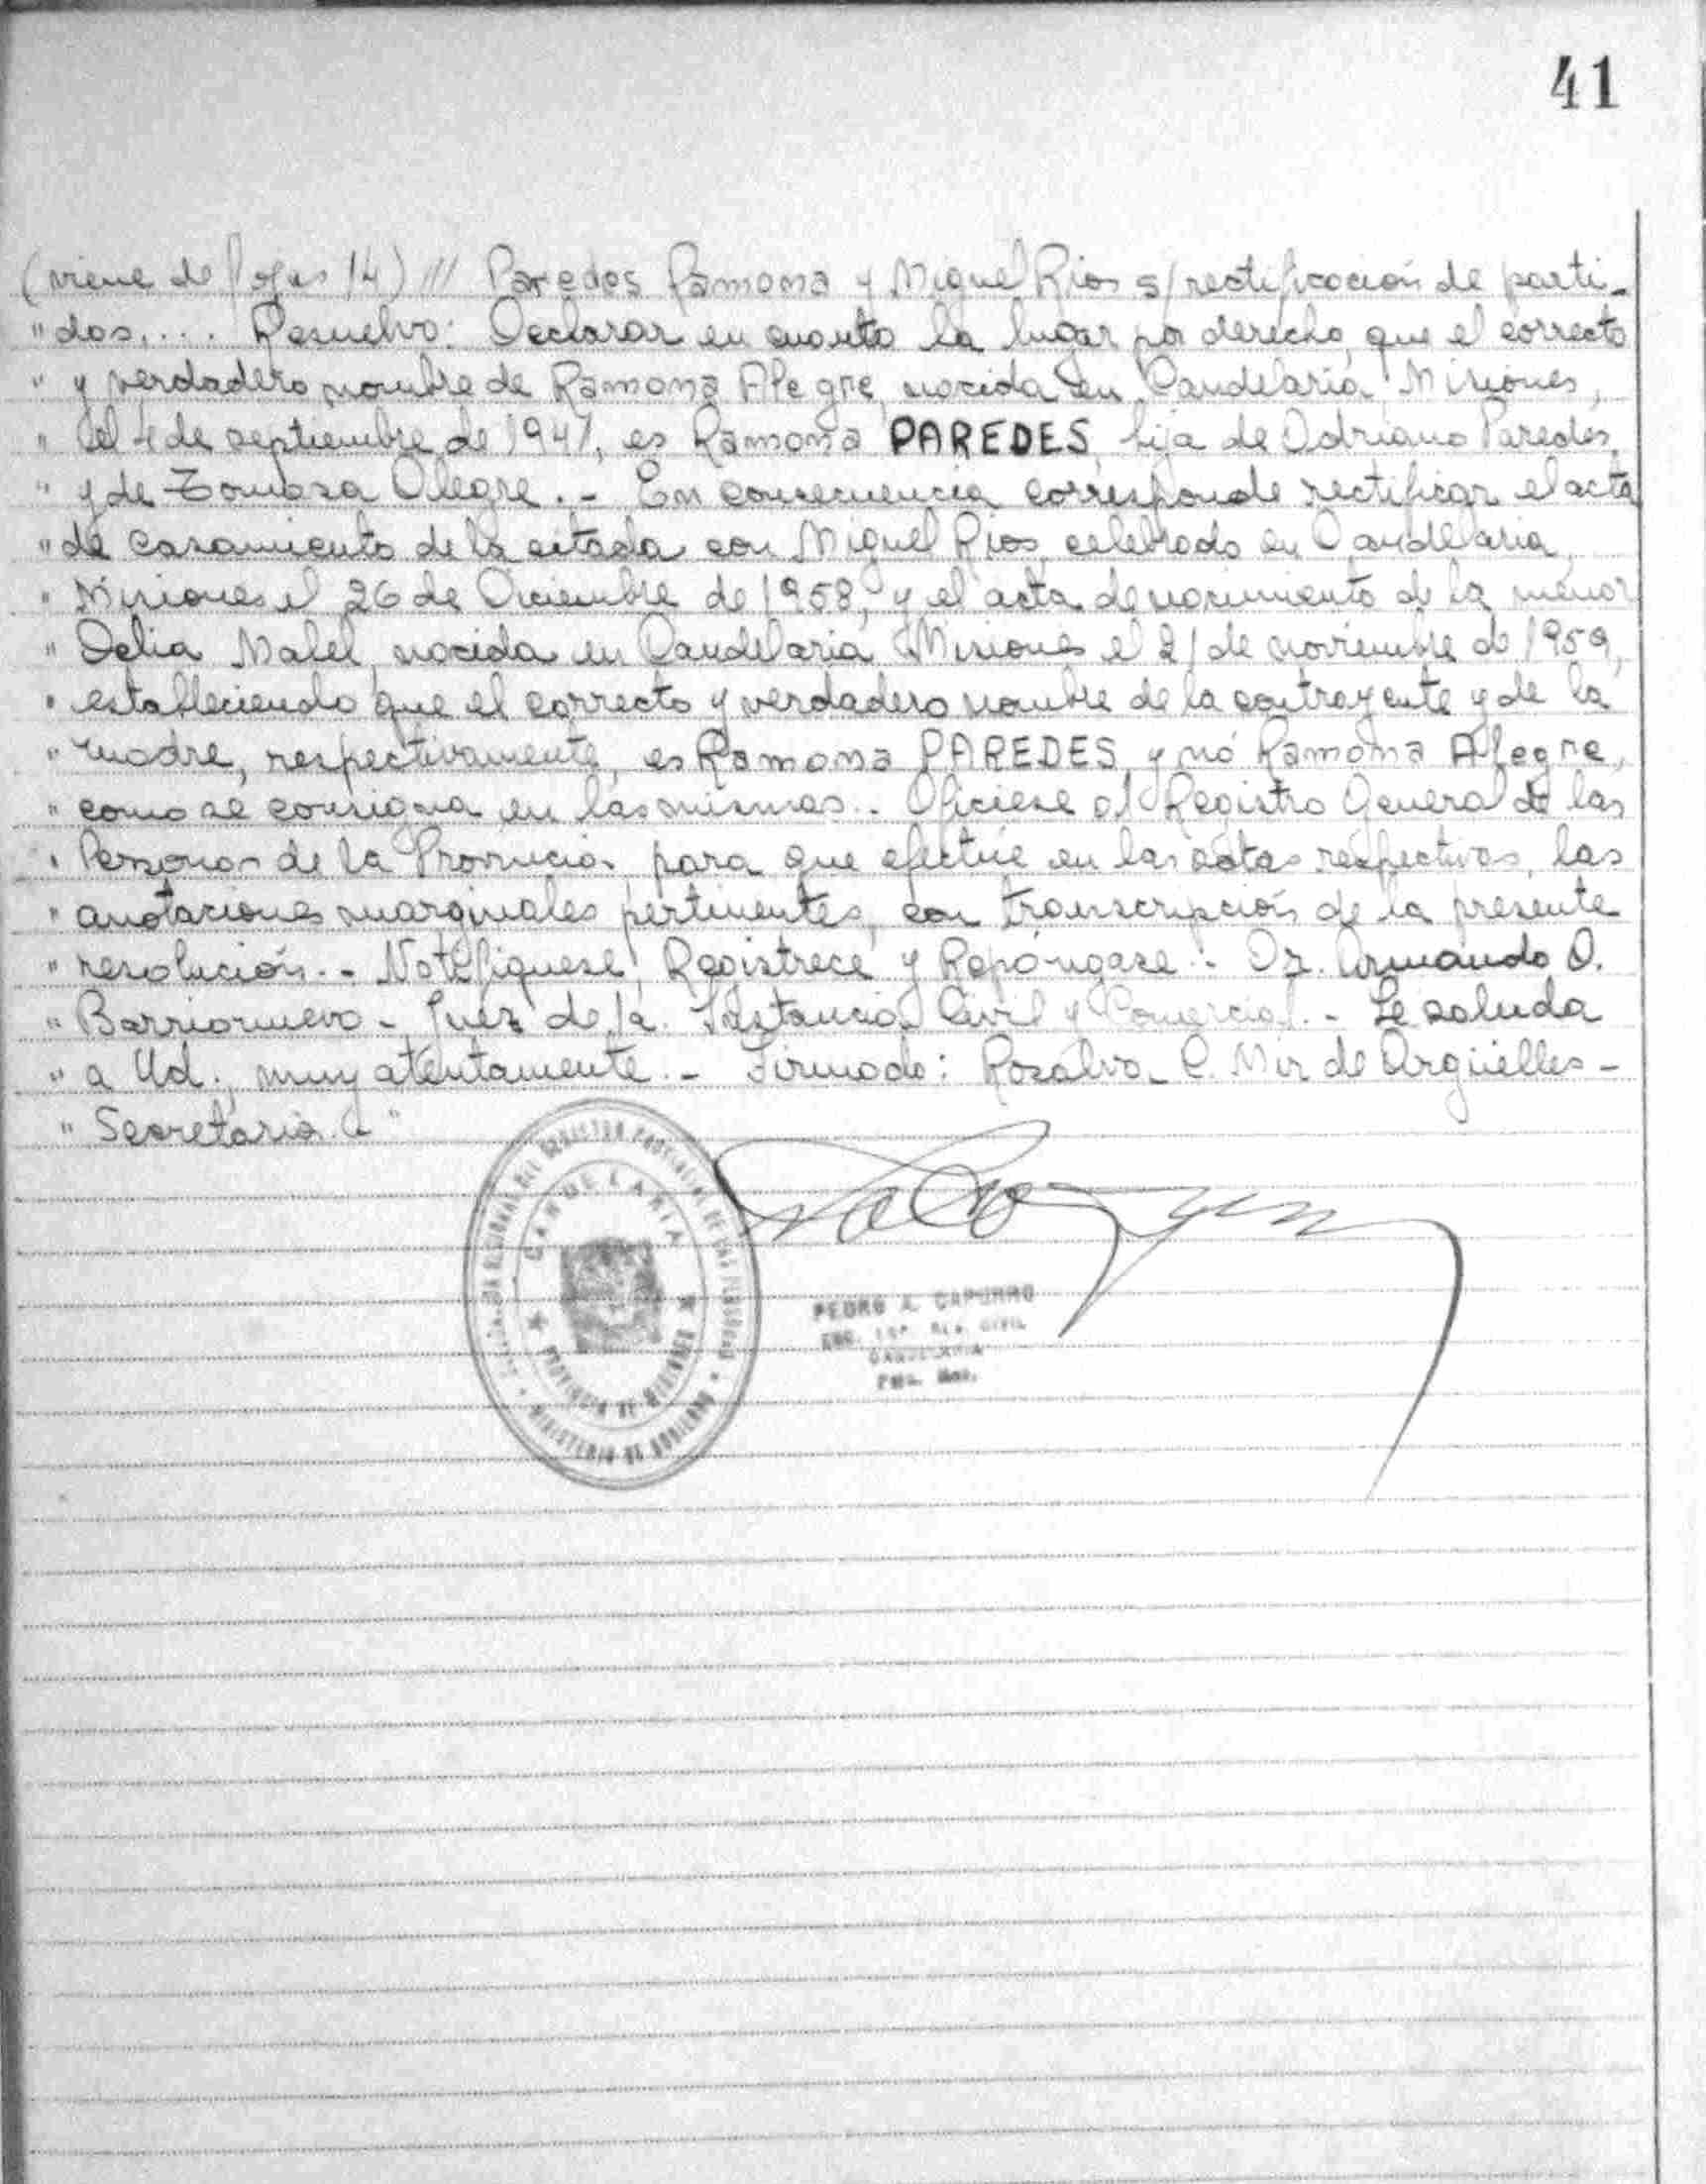 41
(viene de fojas 14) /// Paredes Ramona y Miguel Rios s/rectificación de parti-
"das.... Resuelvo: Declarar en cuanto ha lugar por derecho, que el correcto
" y verdadero nombre de Ramona Alegre, nacida en Candelaria, Misiones,
" el 4 de septiembre de 1941, es Ramona PAREDES, hija de Adriano Paredes
" y de Tomasa Alegre.- En consecuencia corresponde rectificar el acta
"de casamiento de la citada con Miguel Rios, celebrado en Candelaria,
" Misiones el 26 de Diciembre de 1958, y el acta de nacimiento de la menor
" Delia Mabel, nacida en Candelaria Misiones el 21 de noviembre de 1959,
" estableciendo que el correcto y verdadero nombre de la contrayente y de la
" madre, respectivamente, es Ramona PAREDES, y nó Ramona Alegre,
" como se consigna en las mismas.. Oficiese al Registro General de las
" Personas de la Provincia, para que efectúe en las actas respectivas, las
" anotaciones marginales pertinentes, con transcripción de la presente
" resolución.- Notifiquese, Registrece y Repóngase.- Dr. Armando O.
" Barrionuevo - Juez de 1a. Instancia Civil y Comercial.- Le saluda
" a Ud. muy atentamente.- Firmado: Rosalva C. Mir de Argüelles -
" Secretaria "
REGISTRO PROVINCIAL DE LAS PERSONAS
CANDELARIA
PROVINCIA DE MISIONES
MINISTERIO DE GOBIERNO
PEDRO A. CAPURRO
ENC. REG. CIVIL
CANDELARIA